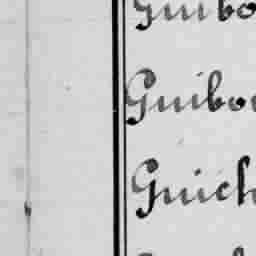 Guibo
Guibou
Guich